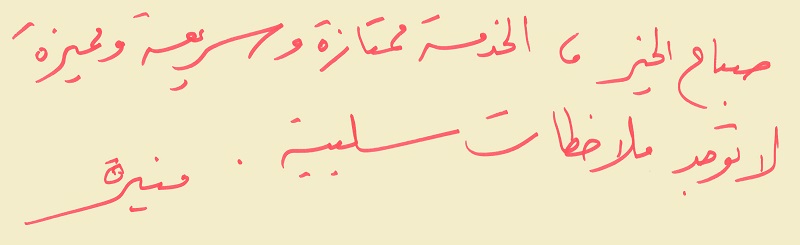 صباح الخير ، الخدمة ممتازة وسريعة ومميزة
لا توجد ملاحظات سلبية . منيرة